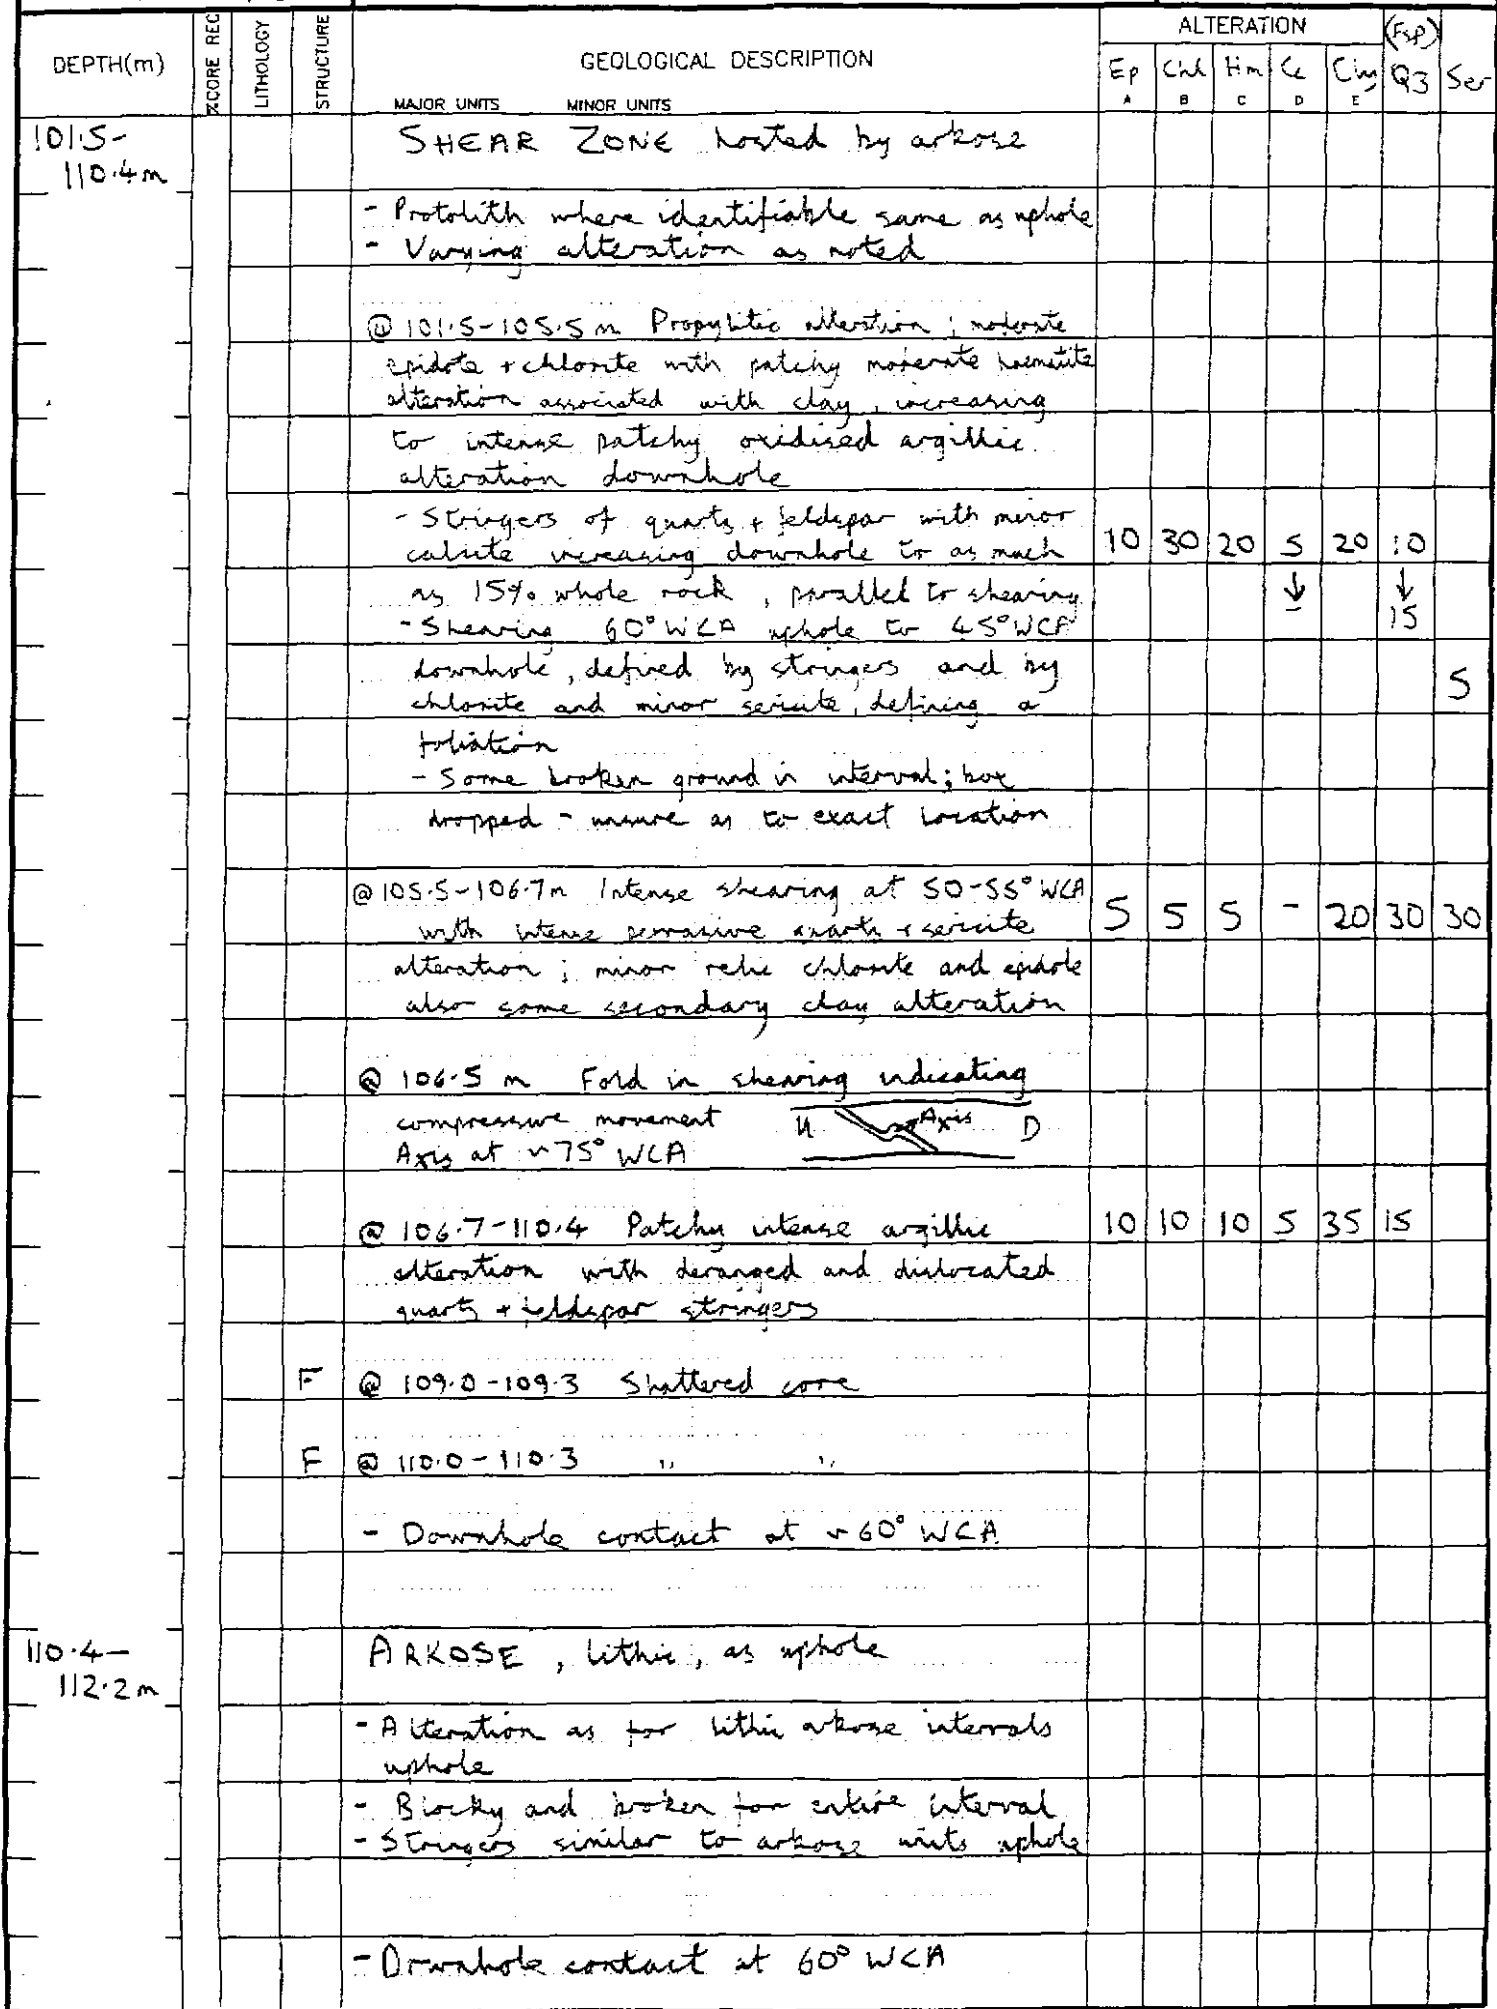 DEPTH(m) %CORE REC LITHOLOGY STRUCTURE GEOLOGICAL DESCRIPTION ALTERATION (Fsp)
Ep Chl Hm Cc Cly Qz Ser
MAJOR UNITS MINOR UNITS A B C D E
101.5- SHEAR ZONE hosted by arkose
110.4m
- Protolith where identifiable same as uphole
- Varying alteration as noted
@ 101.5-105.5 m Propylitic alteration ; moderate
epidote + chlorite with patchy moderate haematite
alteration associated with clay, increasing
to intense patchy oxidised argillic
alteration downhole
- Stringers of quartz + feldspar with minor
calcite increasing downhole to as much 10 30 20 5 20 10
as 15% whole rock , parallel to shearing ↓ ↓
- Shearing 60° WCA uphole to 45° WCA - 15
downhole, defined by stringers and by 5
chlorite and minor sericite, defining a
foliation
- Some broken ground in interval; box
dropped - unsure as to exact location
@ 105.5-106.7m Intense shearing at 50-55° WCA 5 5 5 - 20 30 30
with intense pervasive quartz + sericite
alteration ; minor relic chlorite and epidote
also some secondary clay alteration
@ 106.5 m Fold in shearing indicating
compressive movement U Axis D
Axis at ~75° WCA
@ 106.7-110.4 Patchy intense argillic 10 10 10 5 35 15
alteration with deranged and dislocated
quartz + feldspar stringers
F @ 109.0-109.3 Shattered core
F @ 110.0-110.3 " "
- Downhole contact at ~60° WCA
110.4- ARKOSE , lithic, as uphole
112.2m
- Alteration as for lithic arkose intervals
uphole
- Blocky and broken for entire interval
- Stringers similar to arkose units uphole
- Downhole contact at 60° WCA